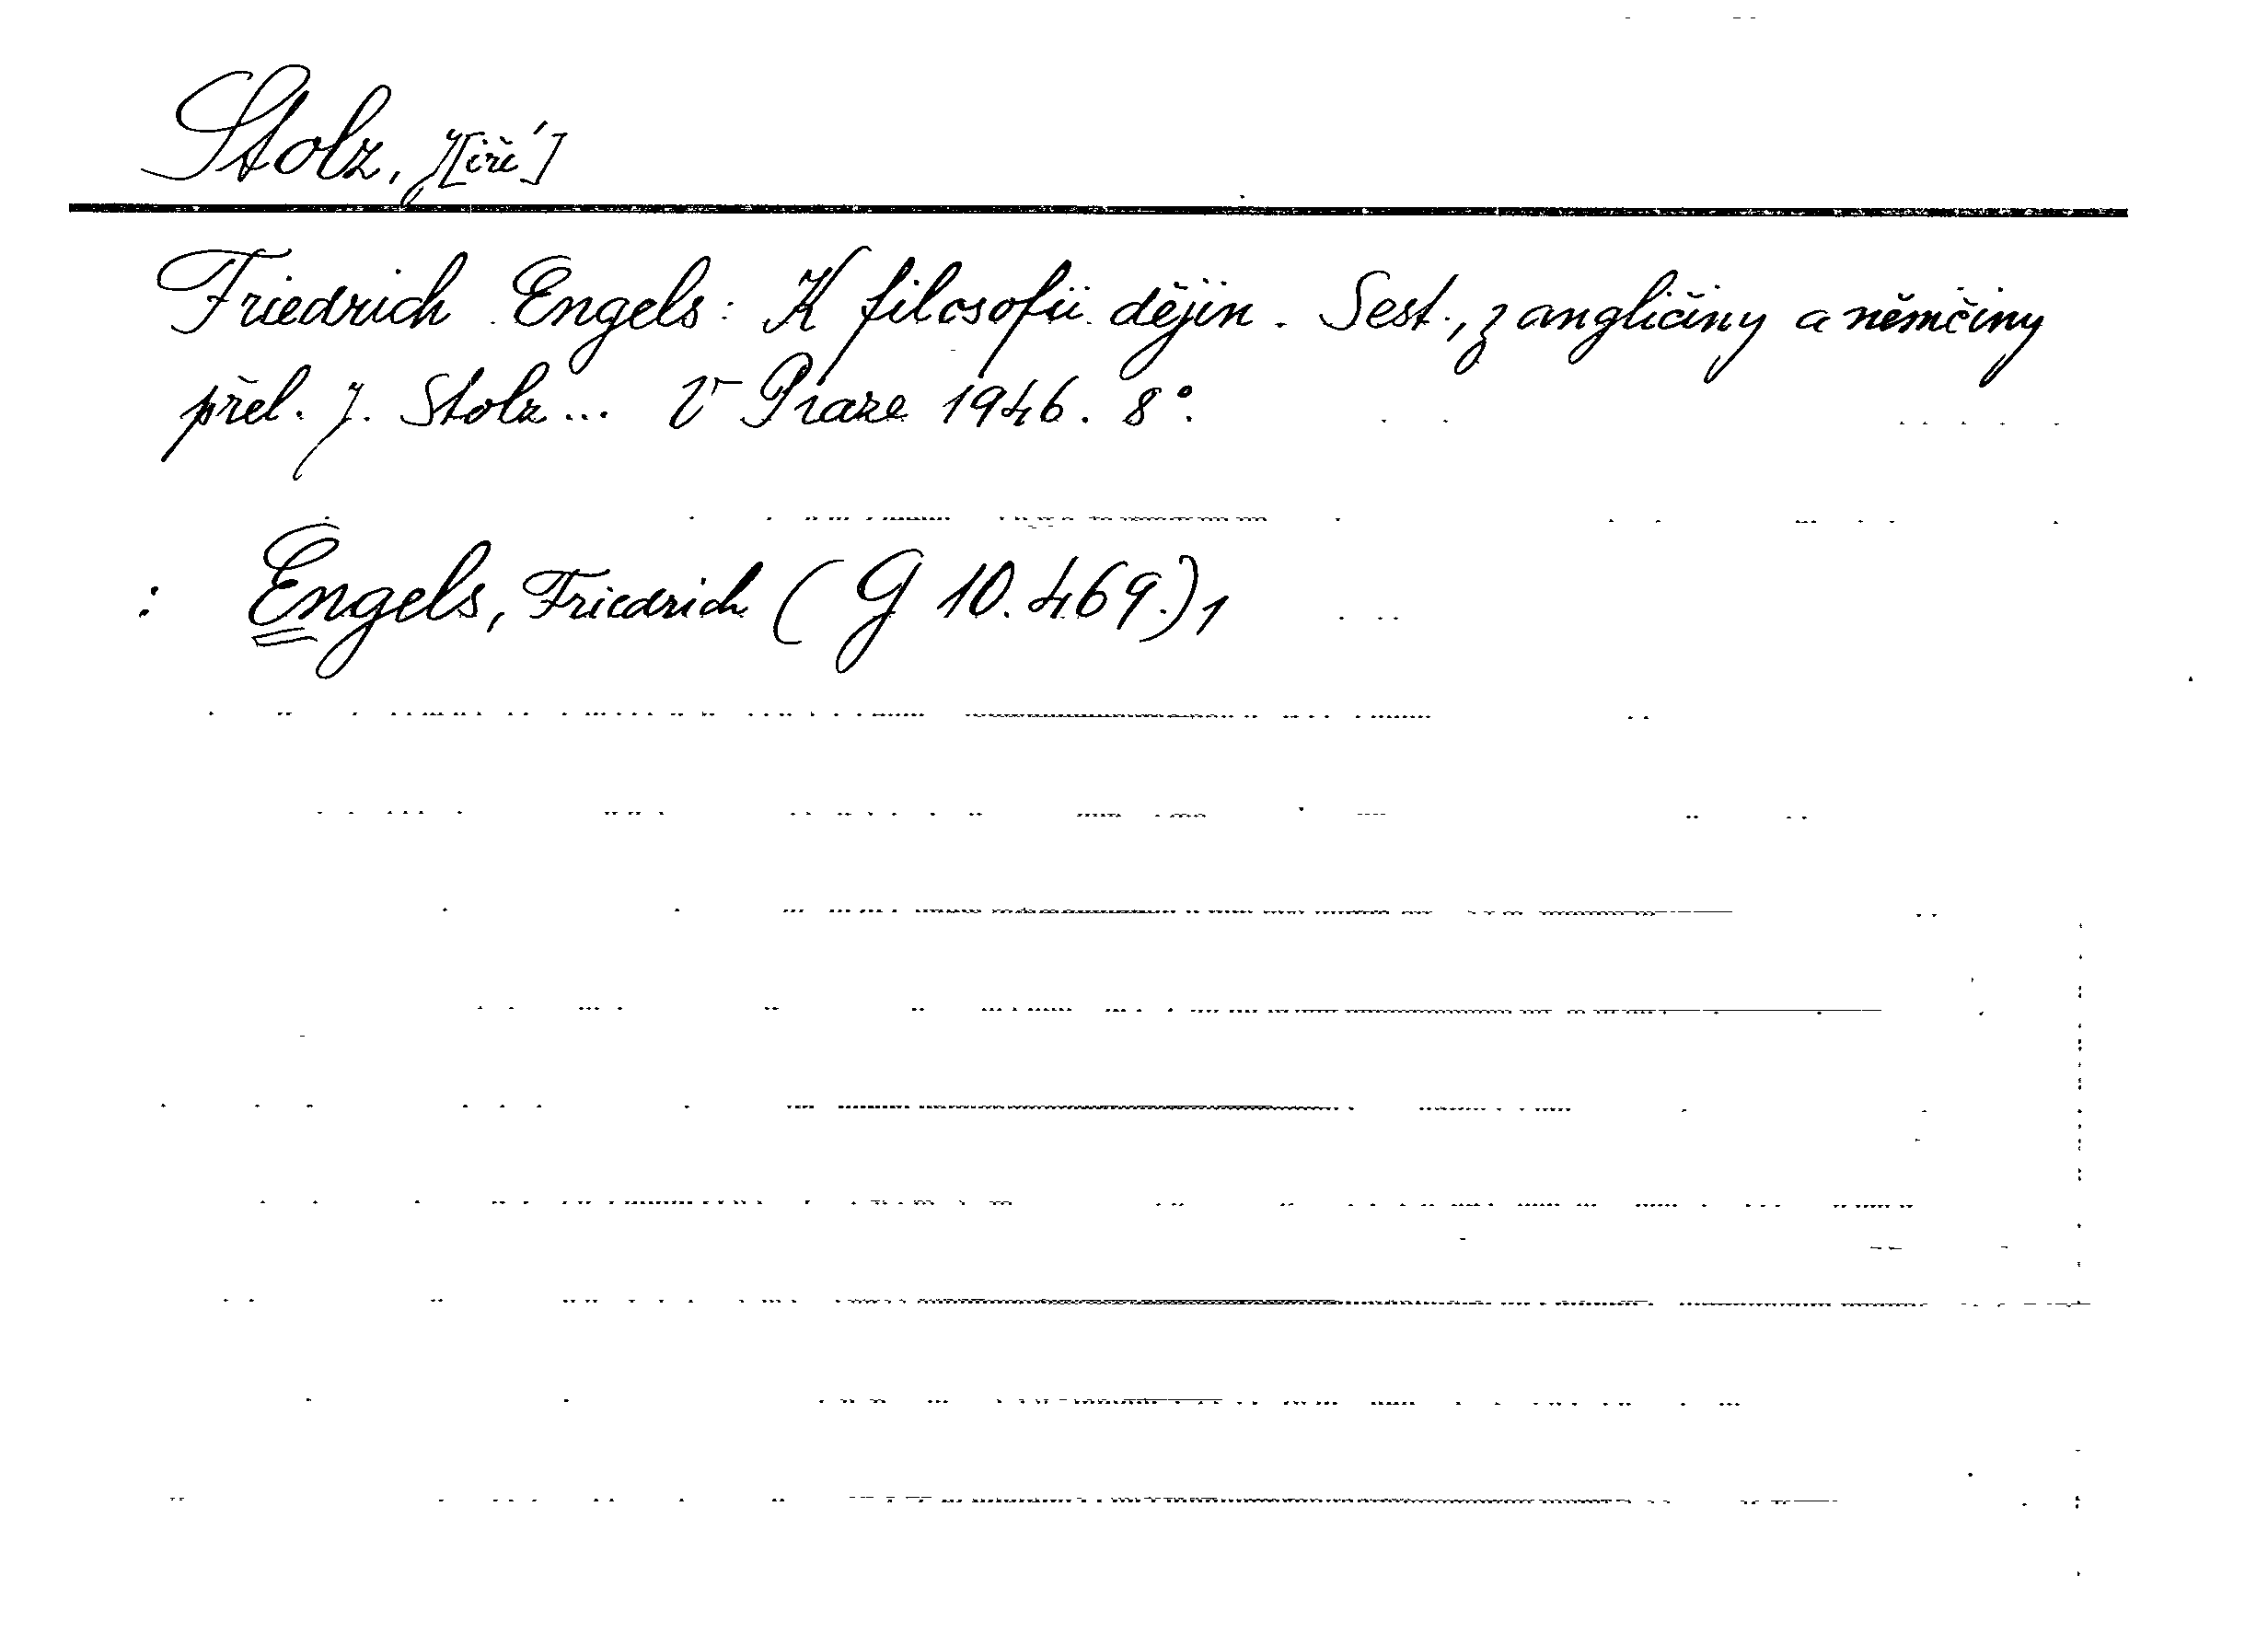 Stolz, J[iří]
Friedrich Engels: K filosofii dějin. Sest., z angličiny a němčiny
přel. J. Stolz... V Praze 1946. 8°.
: Engels, Friedrich (G 10.469.) 1